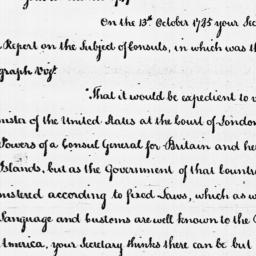 On the 13th October 1785 your Sec
Report on the Subject of Consuls, in which was th
graph Viz.t
That it would be expedient to v
nister of the United States at the Court of London
Powers of a Consul General for Britain and he
Islands, but as the Government of that Countr
nistered according to fixed Laws, which as w
Language and Customs are well known to the C
America, your Secretary thinks there can be but